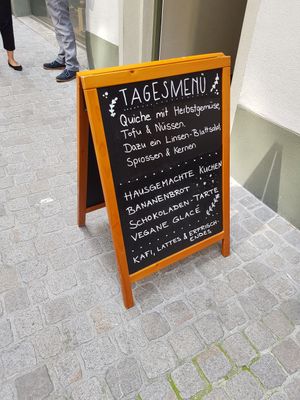 TAGESMENÙ
Quiche mit Herbstgemüse,
Tofu & Nüssen.
Dazu ein Linsen-Blattsalat
Sprossen & Kernen
HAUSGEMACHTE KUCHEN
BANANENBROT
SCHOKOLADEN-TARTE
VEGANE GLACÉ
KAFI, LATTES & ERFRISCH-
ENDES